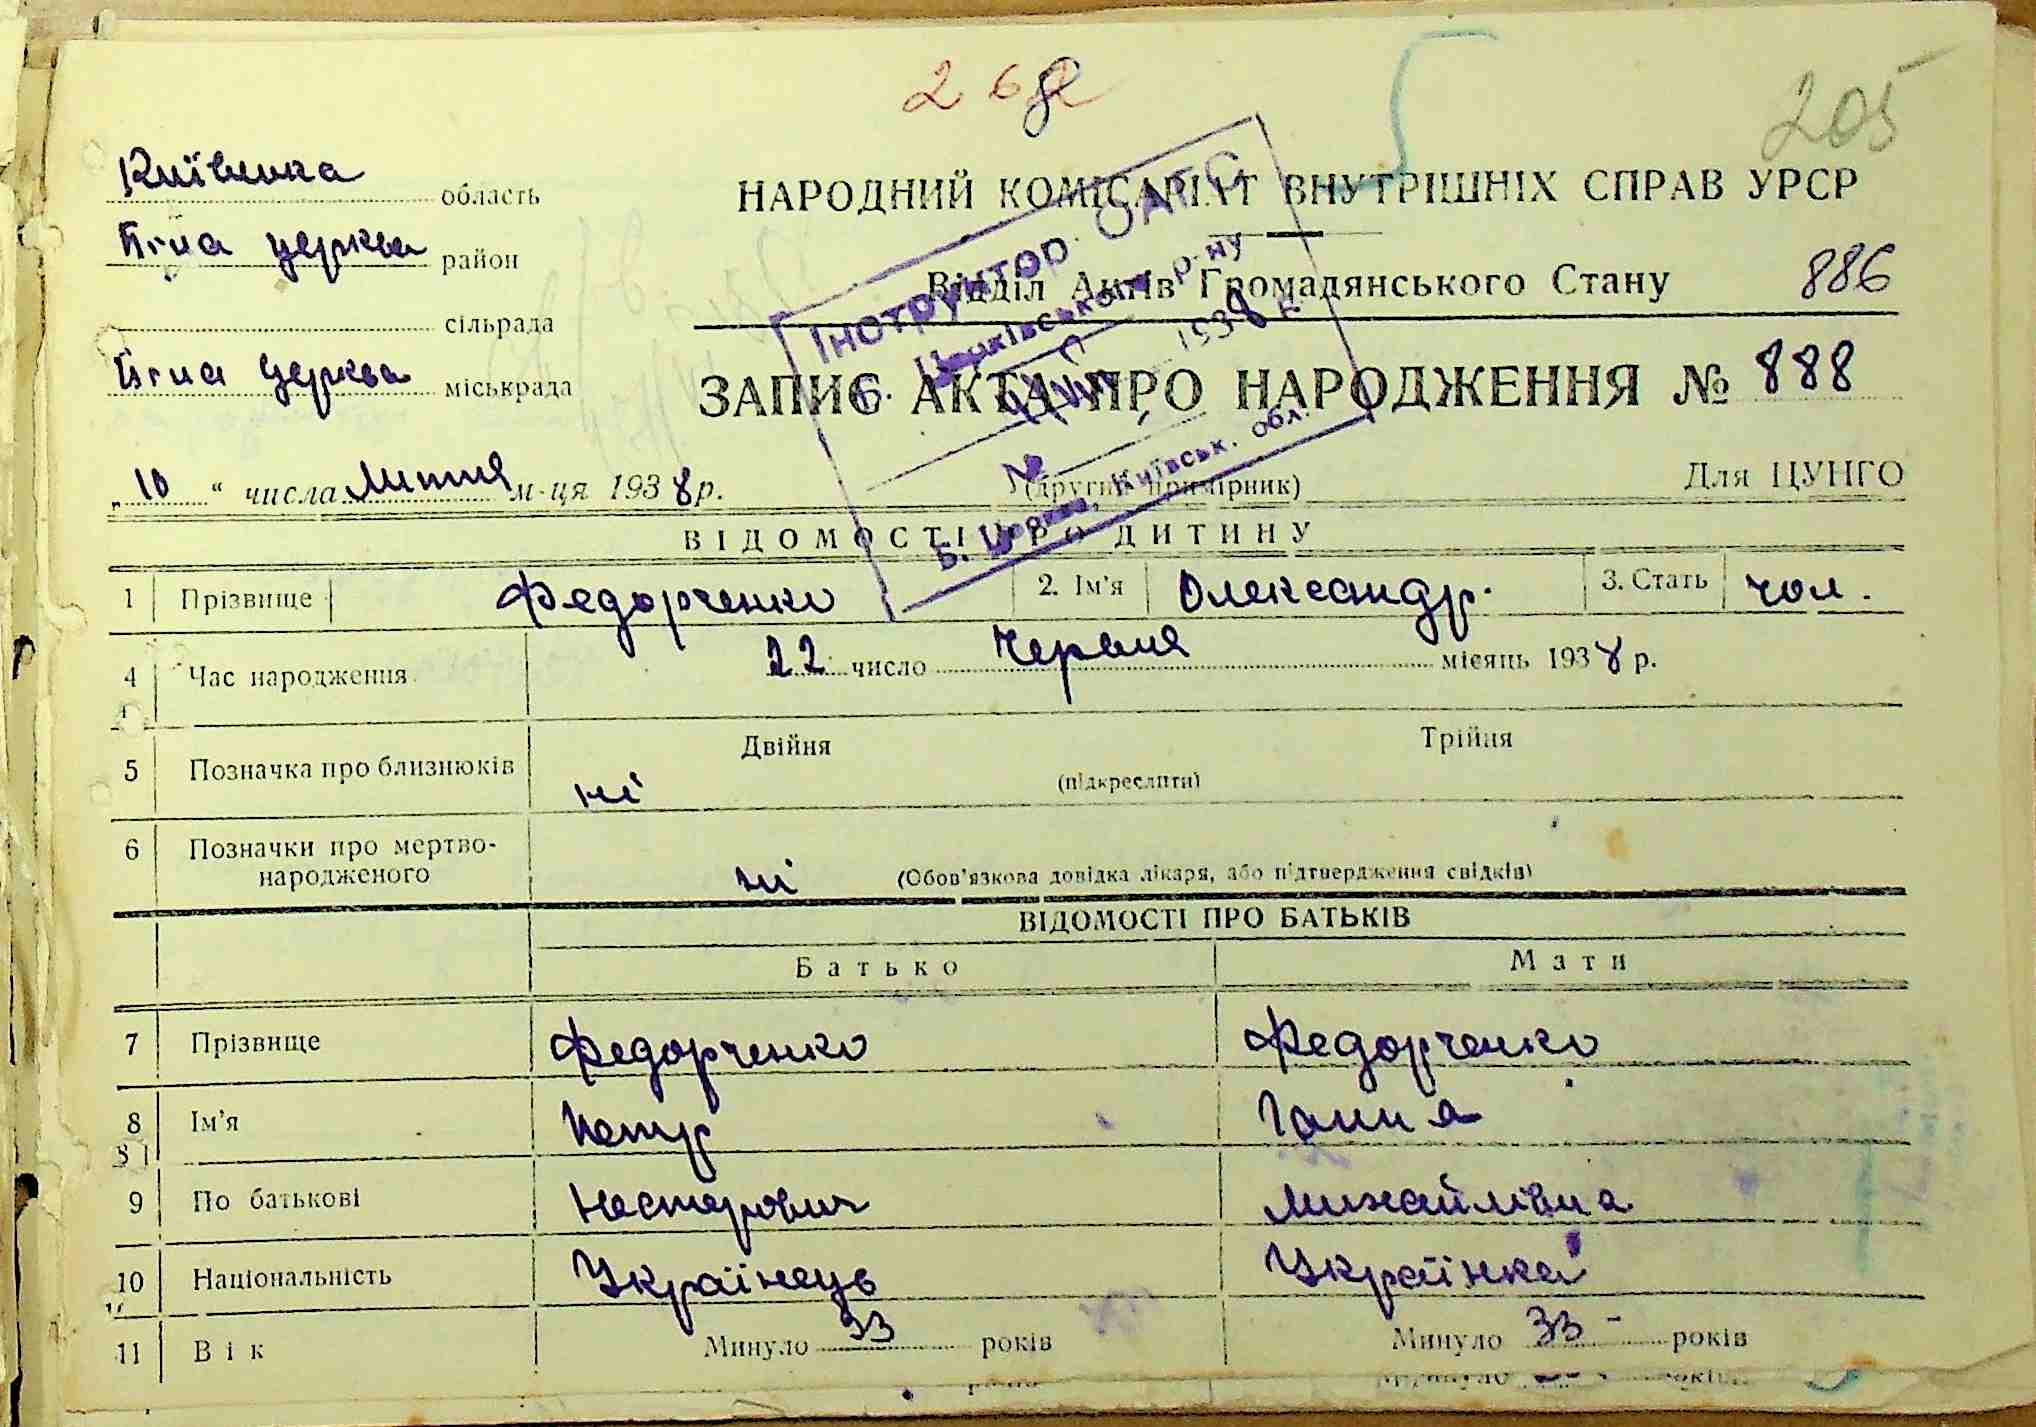 268
205
Київська область
НАРОДНИЙ КОМІСАРІАТ ВНУТРІШНІХ СПРАВ УРСР
Біла церква район
Відділ Актів Громадянського Стану 886
сільрада
Біла Церква міськрада
ЗАПИС АКТА ПРО НАРОДЖЕННЯ № 888
Інструктор ОАГС
Б. Церківського р-ну
1938 р.
№
Б. Церква, Київськ. обл.
„10“ числа Липня м-ця 1938 р.
(другий примірник) Для ЦУНГО
ВІДОМОСТІ ПРО ДИТИНУ
1 Прізвище Федорченко 2. Ім'я Олександр. 3. Стать чол.
4 Час народження 22 число Червня місяць 1938 р.
5 Позначка про близнюків ні Двійня (підкреслити) Трійня
6 Позначки про мертво-
народженого ні (Обов'язкова довідка лікаря, або підтвердження свідків)
ВІДОМОСТІ ПРО БАТЬКІВ
Батько Мати
7 Прізвище Федорченко Федорченко
8 Ім'я Петр Ганна
9 По батькові Несторович Михайлівна
10 Національність Українець Українка
11 Вік Минуло 33 років Минуло 33 років